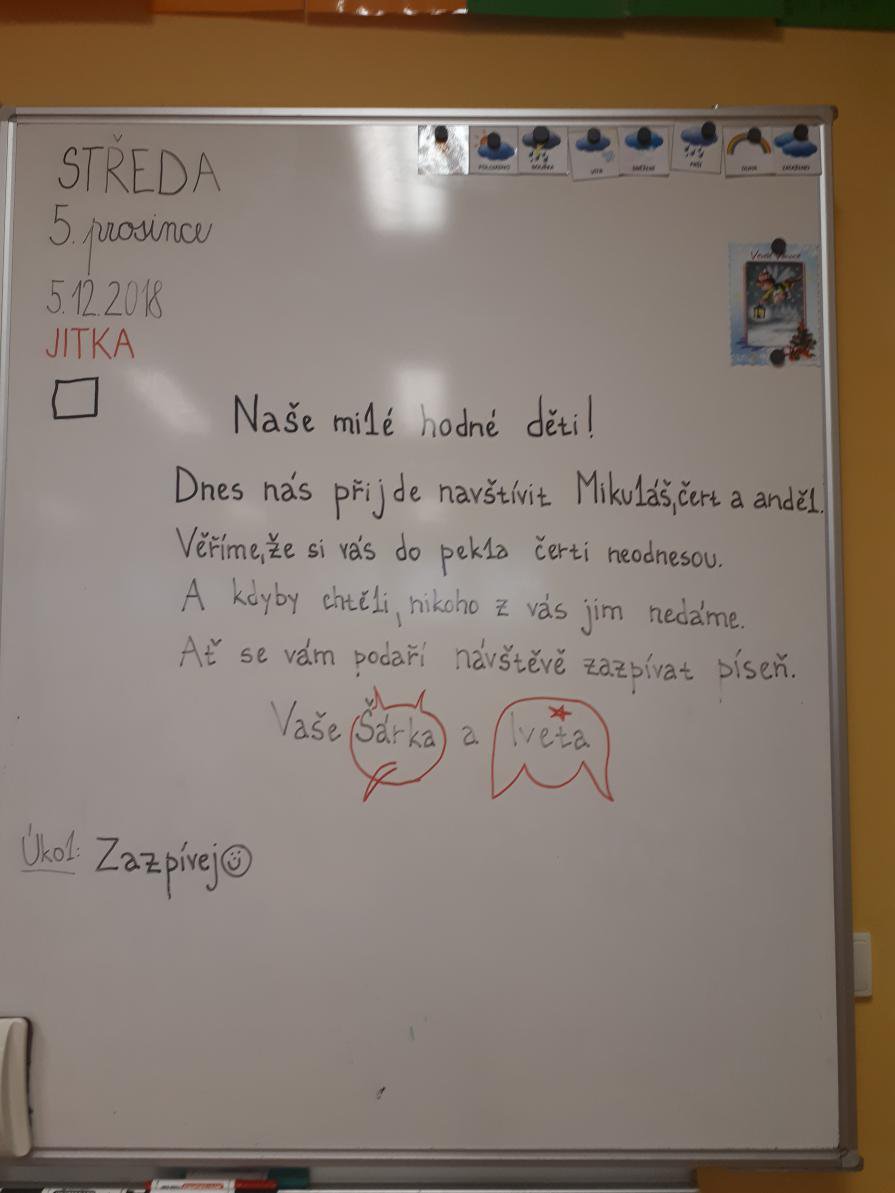 STŘEDA
5. prosince
5.12.2018
JITKA
Naše milé hodné děti!
Dnes nás přijde navštívit Mikuláš,čert a anděl.
Věříme,že si vás do pekla čerti neodnesou.
A kdyby chtěli, nikoho z vás jim nedáme.
Ať se vám podaří návštěvě zazpívat píseň.
Vaše Šárka a Iveta
Úkol: Zazpívej☺